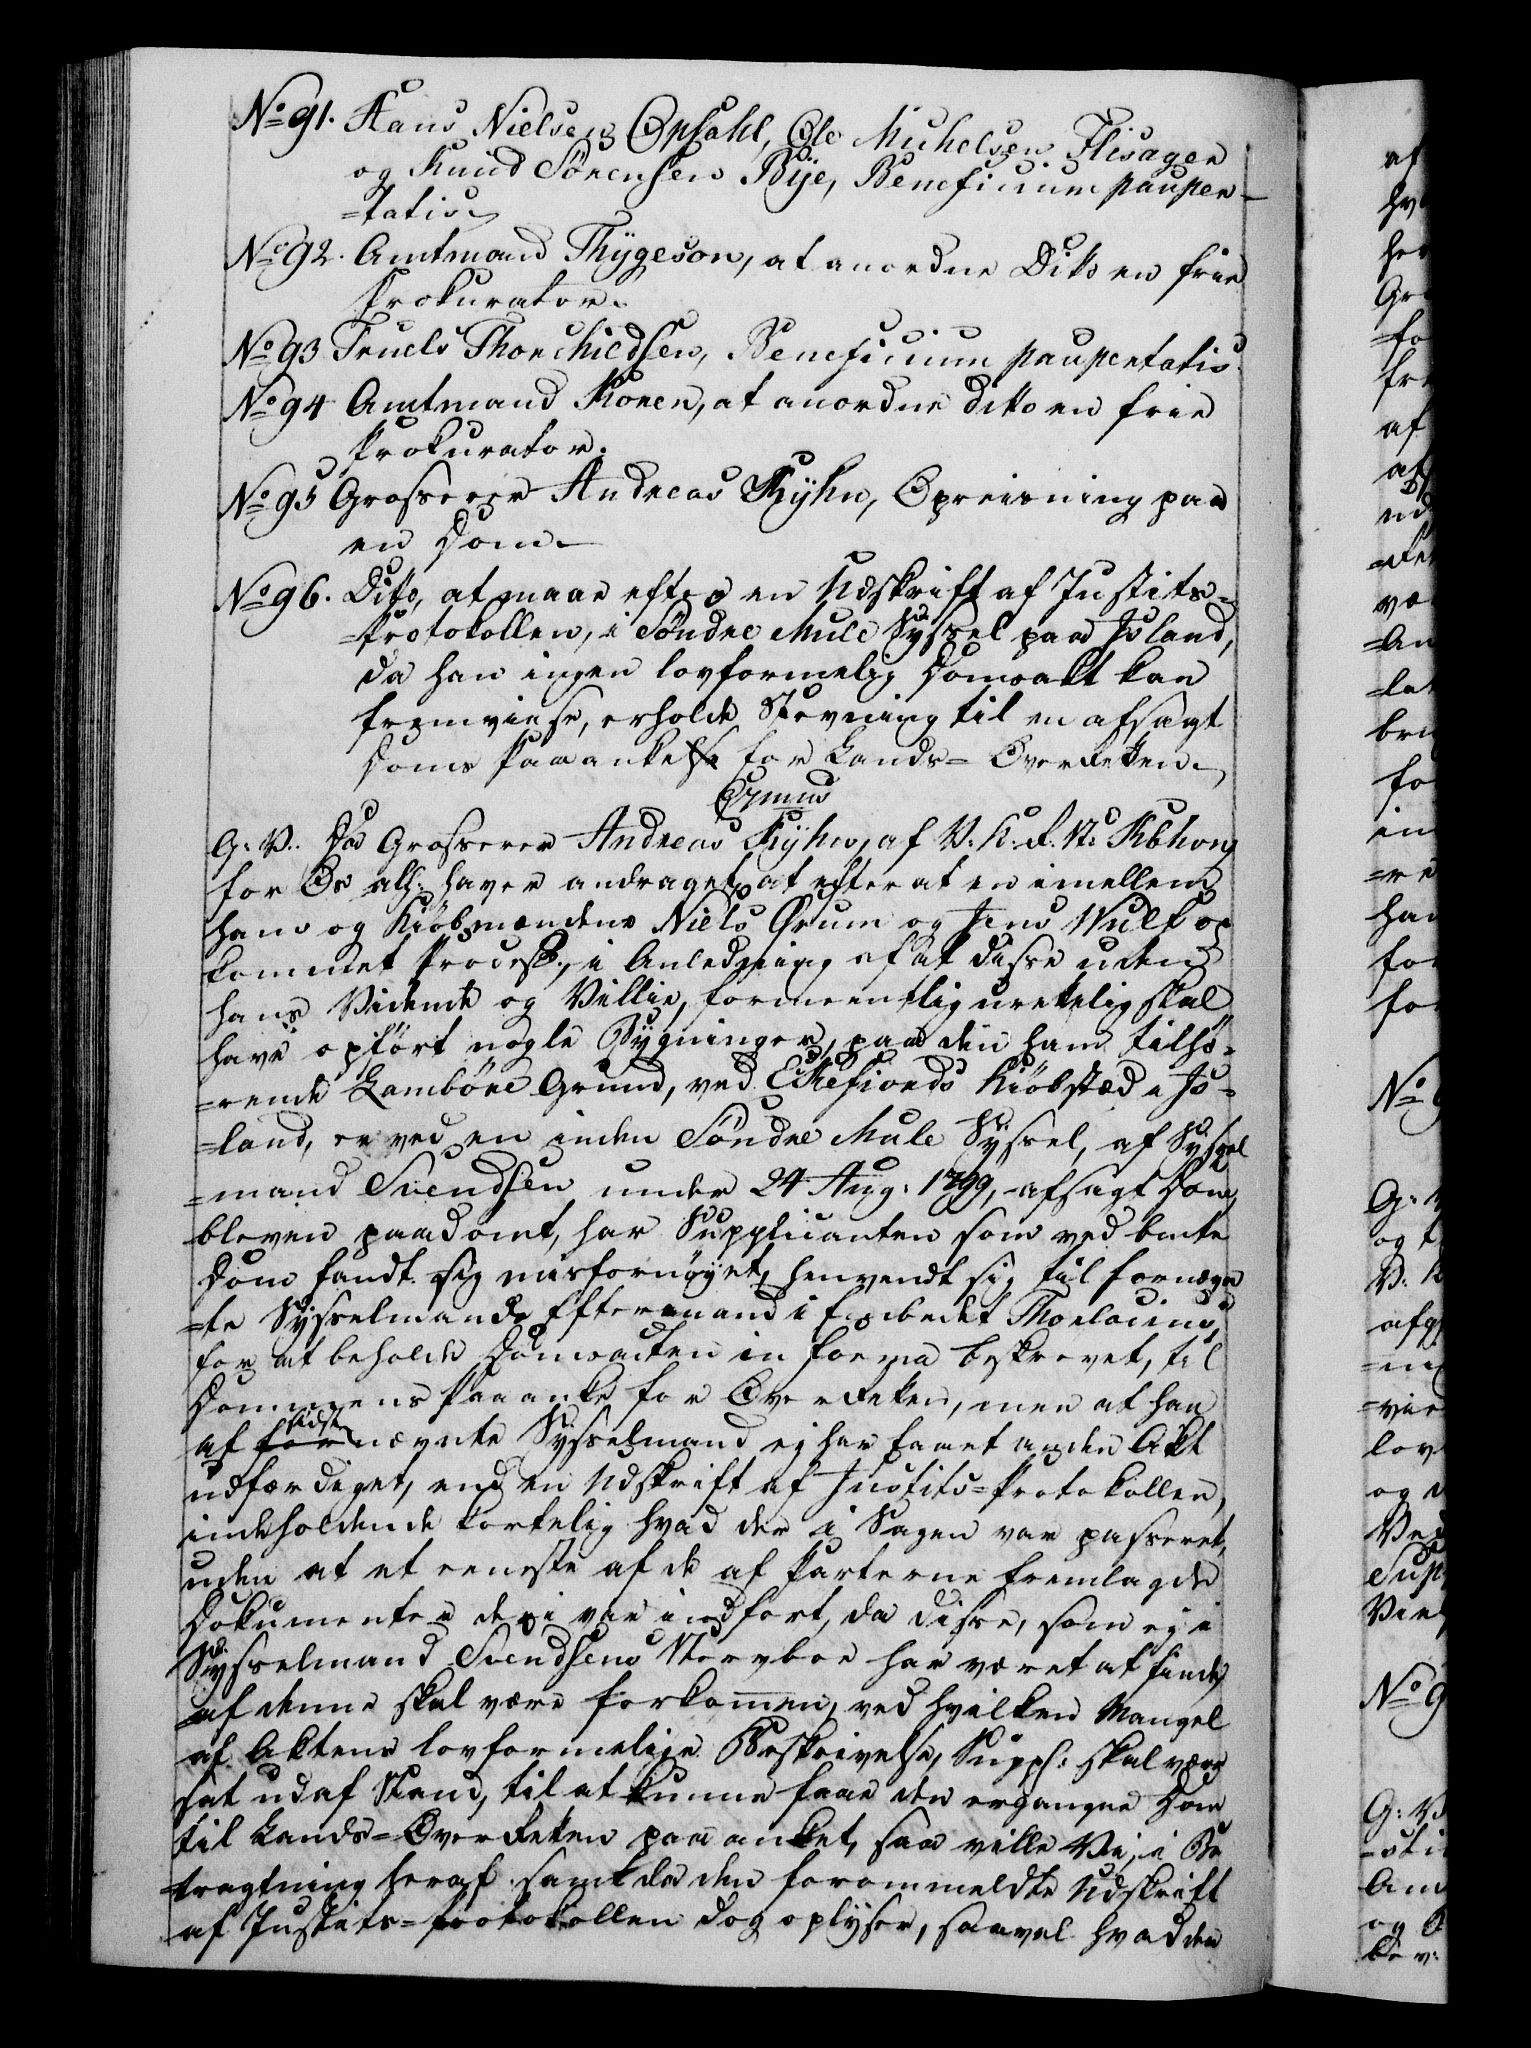 No 91. Hans Nielsen Opsahl, Ole Michelsen Flisager
og Knud Sörensen Bije, Beneficium pauper-
=tatis.
No 92. Amtmand Thygeson, at anordne Dito en frie
Prokurator.
No 93 Truels Thorchildsen, Beneficium paupertatis.
No 94 Amtmand Koren, at anordne dito en frie
Prokurator.
No 95 Grosserer Andreas Kÿhn, Opreisning paa
en Dom.
No 96. Dito, at maae efter en Udskrift af Justits-
=Protokollen, i Söndre Mule Syssel paa Island,
da han ingen lovformelig Domsakt kan
fremviise, erholde Stevning til en afsagt
Doms Paaanke for Lands-Overretten.
G: V. Da Grosserer Andreas Kÿhn, af V. K. R. St: Kbhavn
for Os all: haver andraget, at efter at en imellem
ham og Kiöbmændene Niels Örum og Jens Wulf op
kommet Process, i Anledning af at disse uden
hans Vidende og Villie, formeentlig uretteligskal
have opfört nogle Bygninger, paa den ham tilhö-
=rende Lamböre Grund, ved Eskefiords Kiöbsted i Is-
=land, er ved en inden Söndre Mule Syssel, af Syssel
=mand Svendsen under 24 Aug: 1799, afsagt Dom,
bleven paadömt, har Supplicanten som ved bmte
Dom fandt sig misfornöyet, henvendt sig til fornævn
=te Sysselmands Eftermand i Embedet Thorlacius,
for at beholde Domsacten in forma beskrevet, til
Dommens Paaanke for Overretten, men at han
af sidstnævnte Sysselmand ej har faaet anden Akt
udfærdiget, end en Udskrift af Justits-Protokollen,
indeholdende kortelig hvad der i Sagen var passeret,
uden at et eeneste af de af Parterne fremlagde
Dokumenter deri var indfört, da disse, som ej i
Sysselmand Svendsens Stervboe har været at finde,
af denne skal være forkommen, ved hvilken Mangel
af Aktens lovformelige Beskrivelse, Suppl: skal være
sat ud af Stand, til at kunne faae den ergangne Dom
til Lands-Overretten paaanket, saa ville Vi, i Be
=tragtning heraf samt da den forommeldte Udskrift
af Justits-Protokollen dog oplyser, saavel hvad den